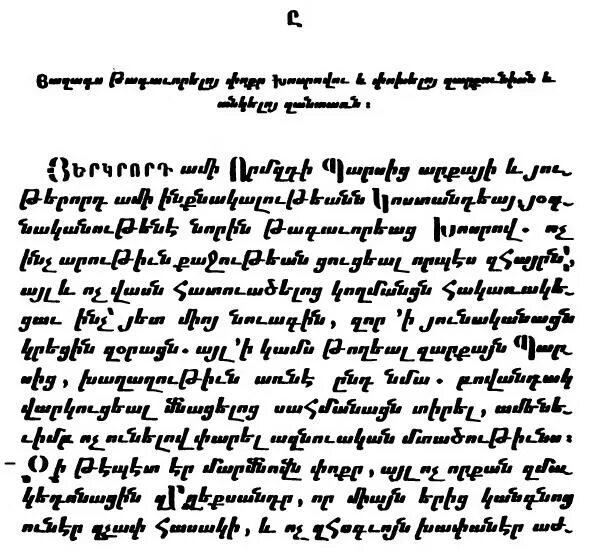 Ը
Յաղագս թագաւորելոյ փոքր Խոսրովու և փոխելոյ զարքունիսն և
անկելոյ զանտառն։
ՅԵՐԿՐՈՐԴ ամի Որմզդի Պարսից արքայի և յու֊
թերորդ ամի ինքնակալութեանն Կոստանդեայ, յօգ֊
նականութենէ նորին թագաւորեաց Խոսրով. ոչ
ինչ արութիւն քաջութեան ցուցեալ որպէս զհայրն,
այլ և ոչ վասն հատուածելոց կողմանցն հակառակե֊
ցաւ ինչ՝ յետ միոյ նուագին, զոր ՚ի յունականացն
կրեցին զօրացն. այլ ՚ի կամս թողեալ զարքայն Պար
սից, խաղաղութիւն առնէ ընդ նմա. բովանդակ
վարկուցեալ մնացելոց սահմանացն տիրել, ամենե֊
ւիմբ ոչ ունելով փարել ազնուական մտածութիւնս։
Զի թէպէտ էր մարմնովն փոքր, այլ ոչ որքան զմա
կեդոնացին զԱղեքսանդր, որ միայն երից կանգնոց
ունէր զչափ հասակի, և ոչ զհոգւոյն խափանէր աժ֊